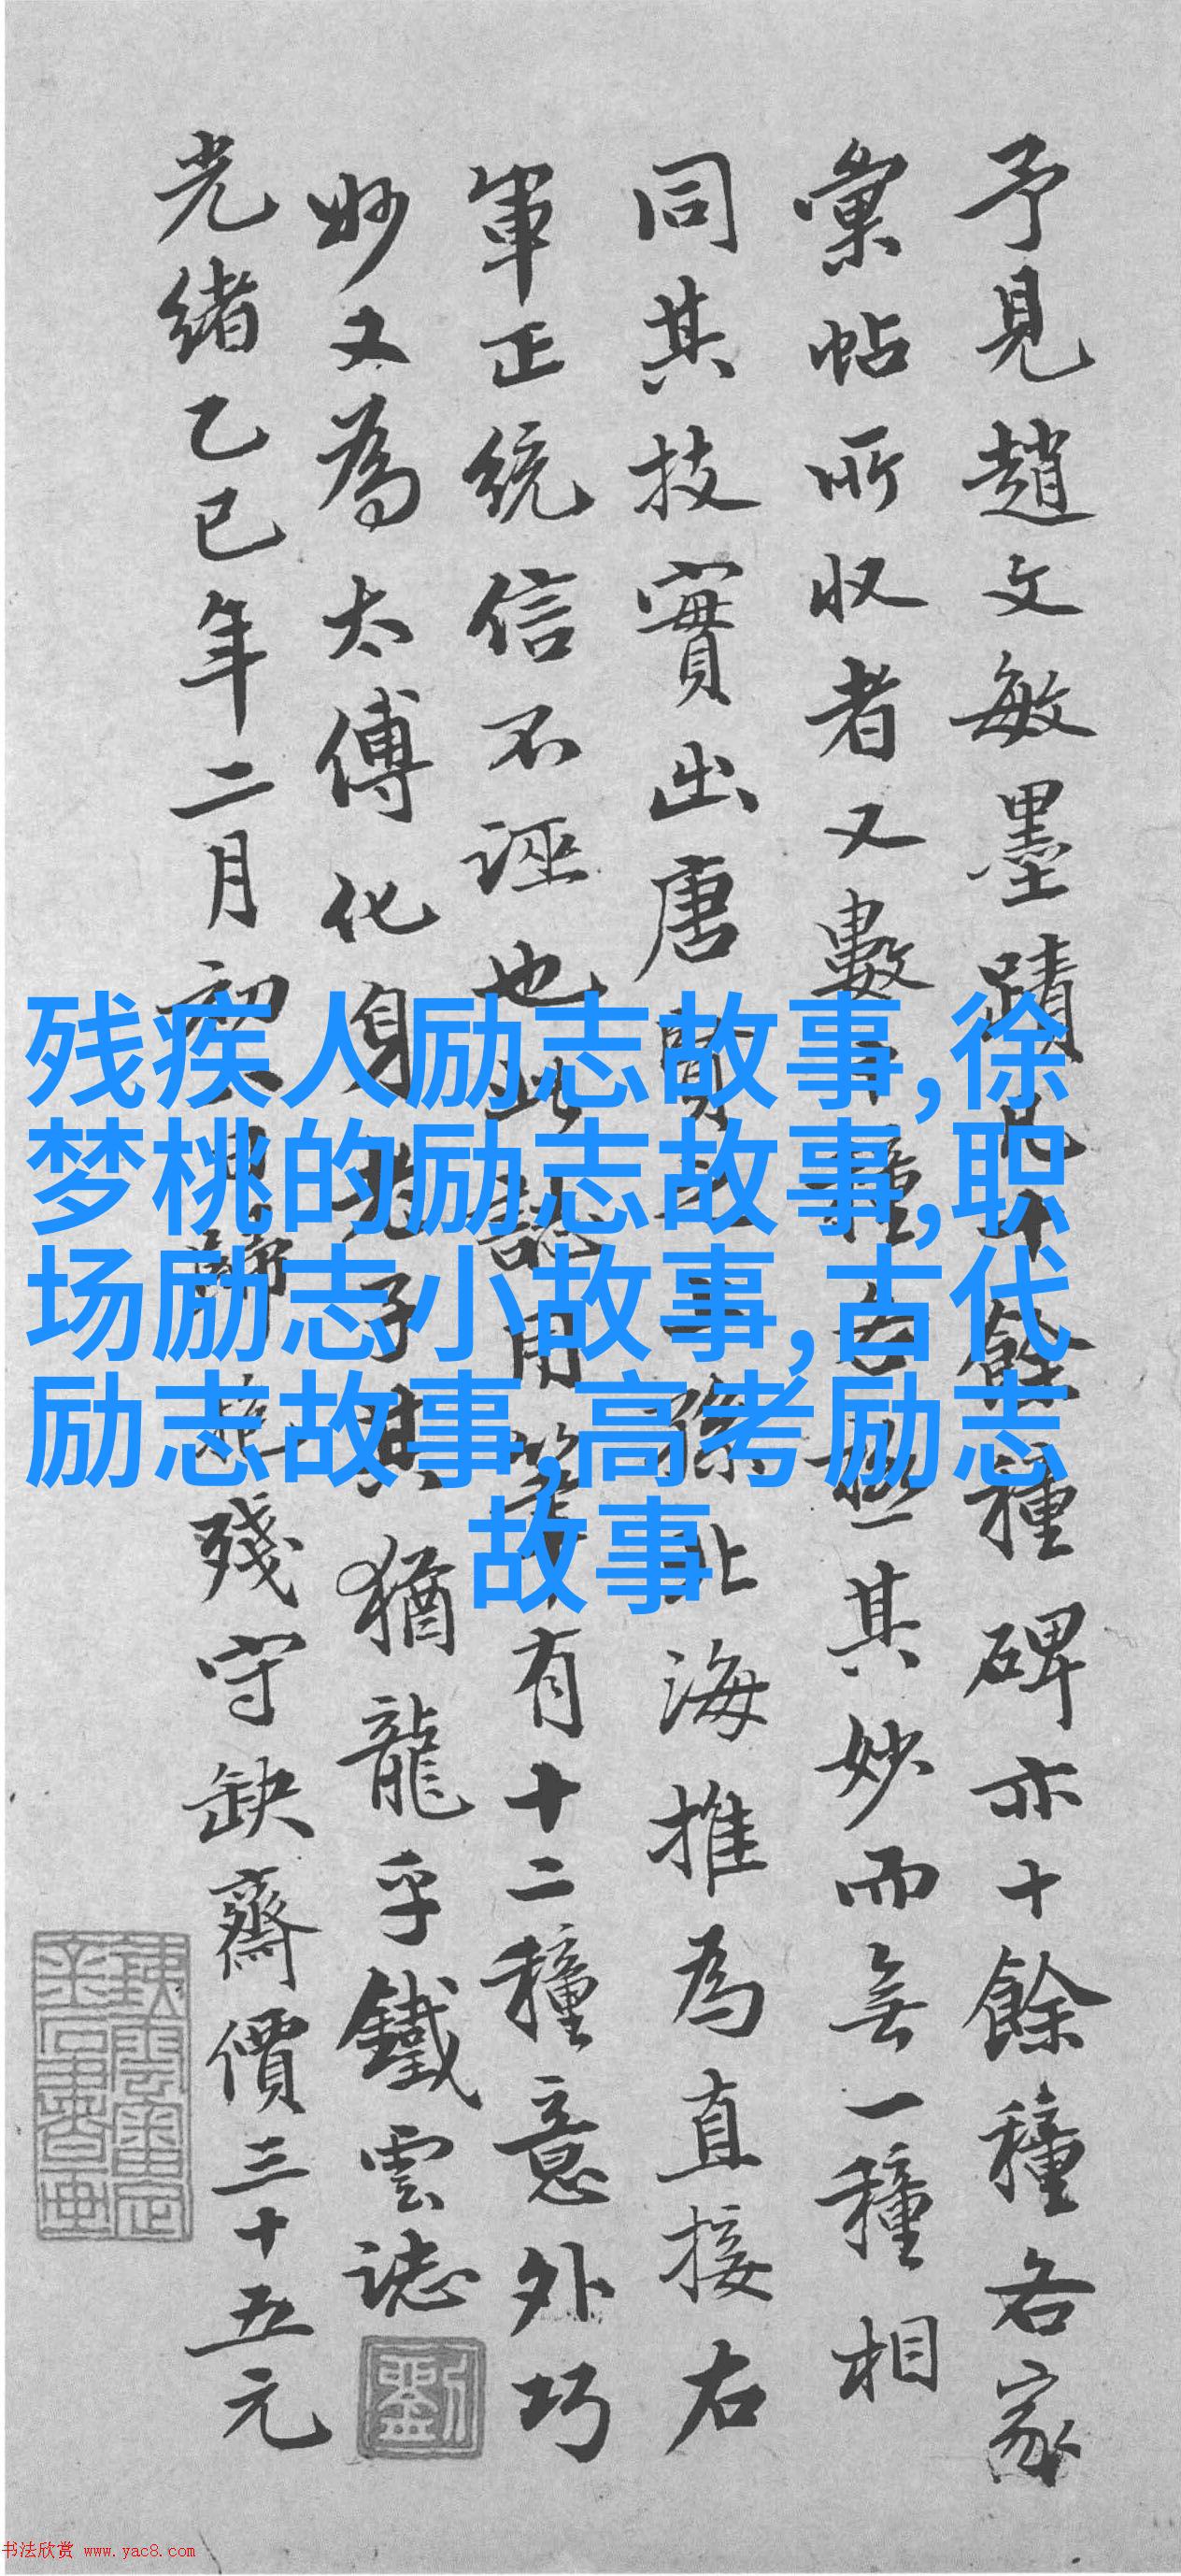 予見趙文敏墨蹟凡十餘種碑亦十餘種各家
彙帖所收者又數十種各極其妙而無一種相
同其技實出唐賢之上孫北海推為直接右
軍正統信不誣也此記用筆有十二種意外巧
妙又為太傅化身老子其猶龍乎鐵雲誌
光緒乙巳年二月初
殘守缺齋價三十五元
劉
残疾人励志故事,徐
梦桃的励志故事,职
场励志小故事,古代
励志故事,高考励志
故事
书法欣赏 www.yac8.com